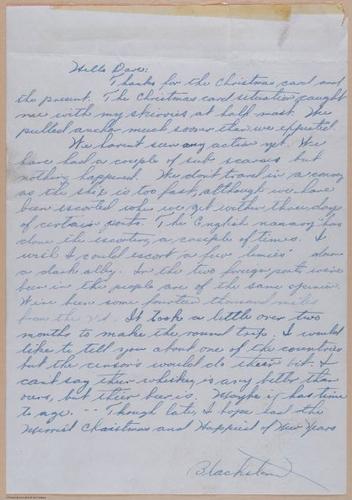 Hello Dave:
Thanks for the Christmas card and
the present. The Christmas card situation caught
me with my skivvies at half mast. We
pulled anchor much sooner than we expected.
We havent seen any action yet. We
have had a couple of sub scares but
nothing happened. We don't travel in a convoy
as the ship is too fast, although we have
been escorted when we get within three days
of certain ports. The English navy has
done the escorting a couple of times. I
wish I could escort a few limies down
a dark alley. In the two foreign ports weve
been in the people are of the same opinion.
We've been some fourteen thousand miles
from the It took a little over two
months to make the round trip. I would
like to tell you about one of the countries
but the censors would do their bit. I
cant say their whiskey is any better than
ours, but their beer is. Maybe it has time
to age. -- Though late, I hope had the
Merriest Christmas and Happiest of New Years